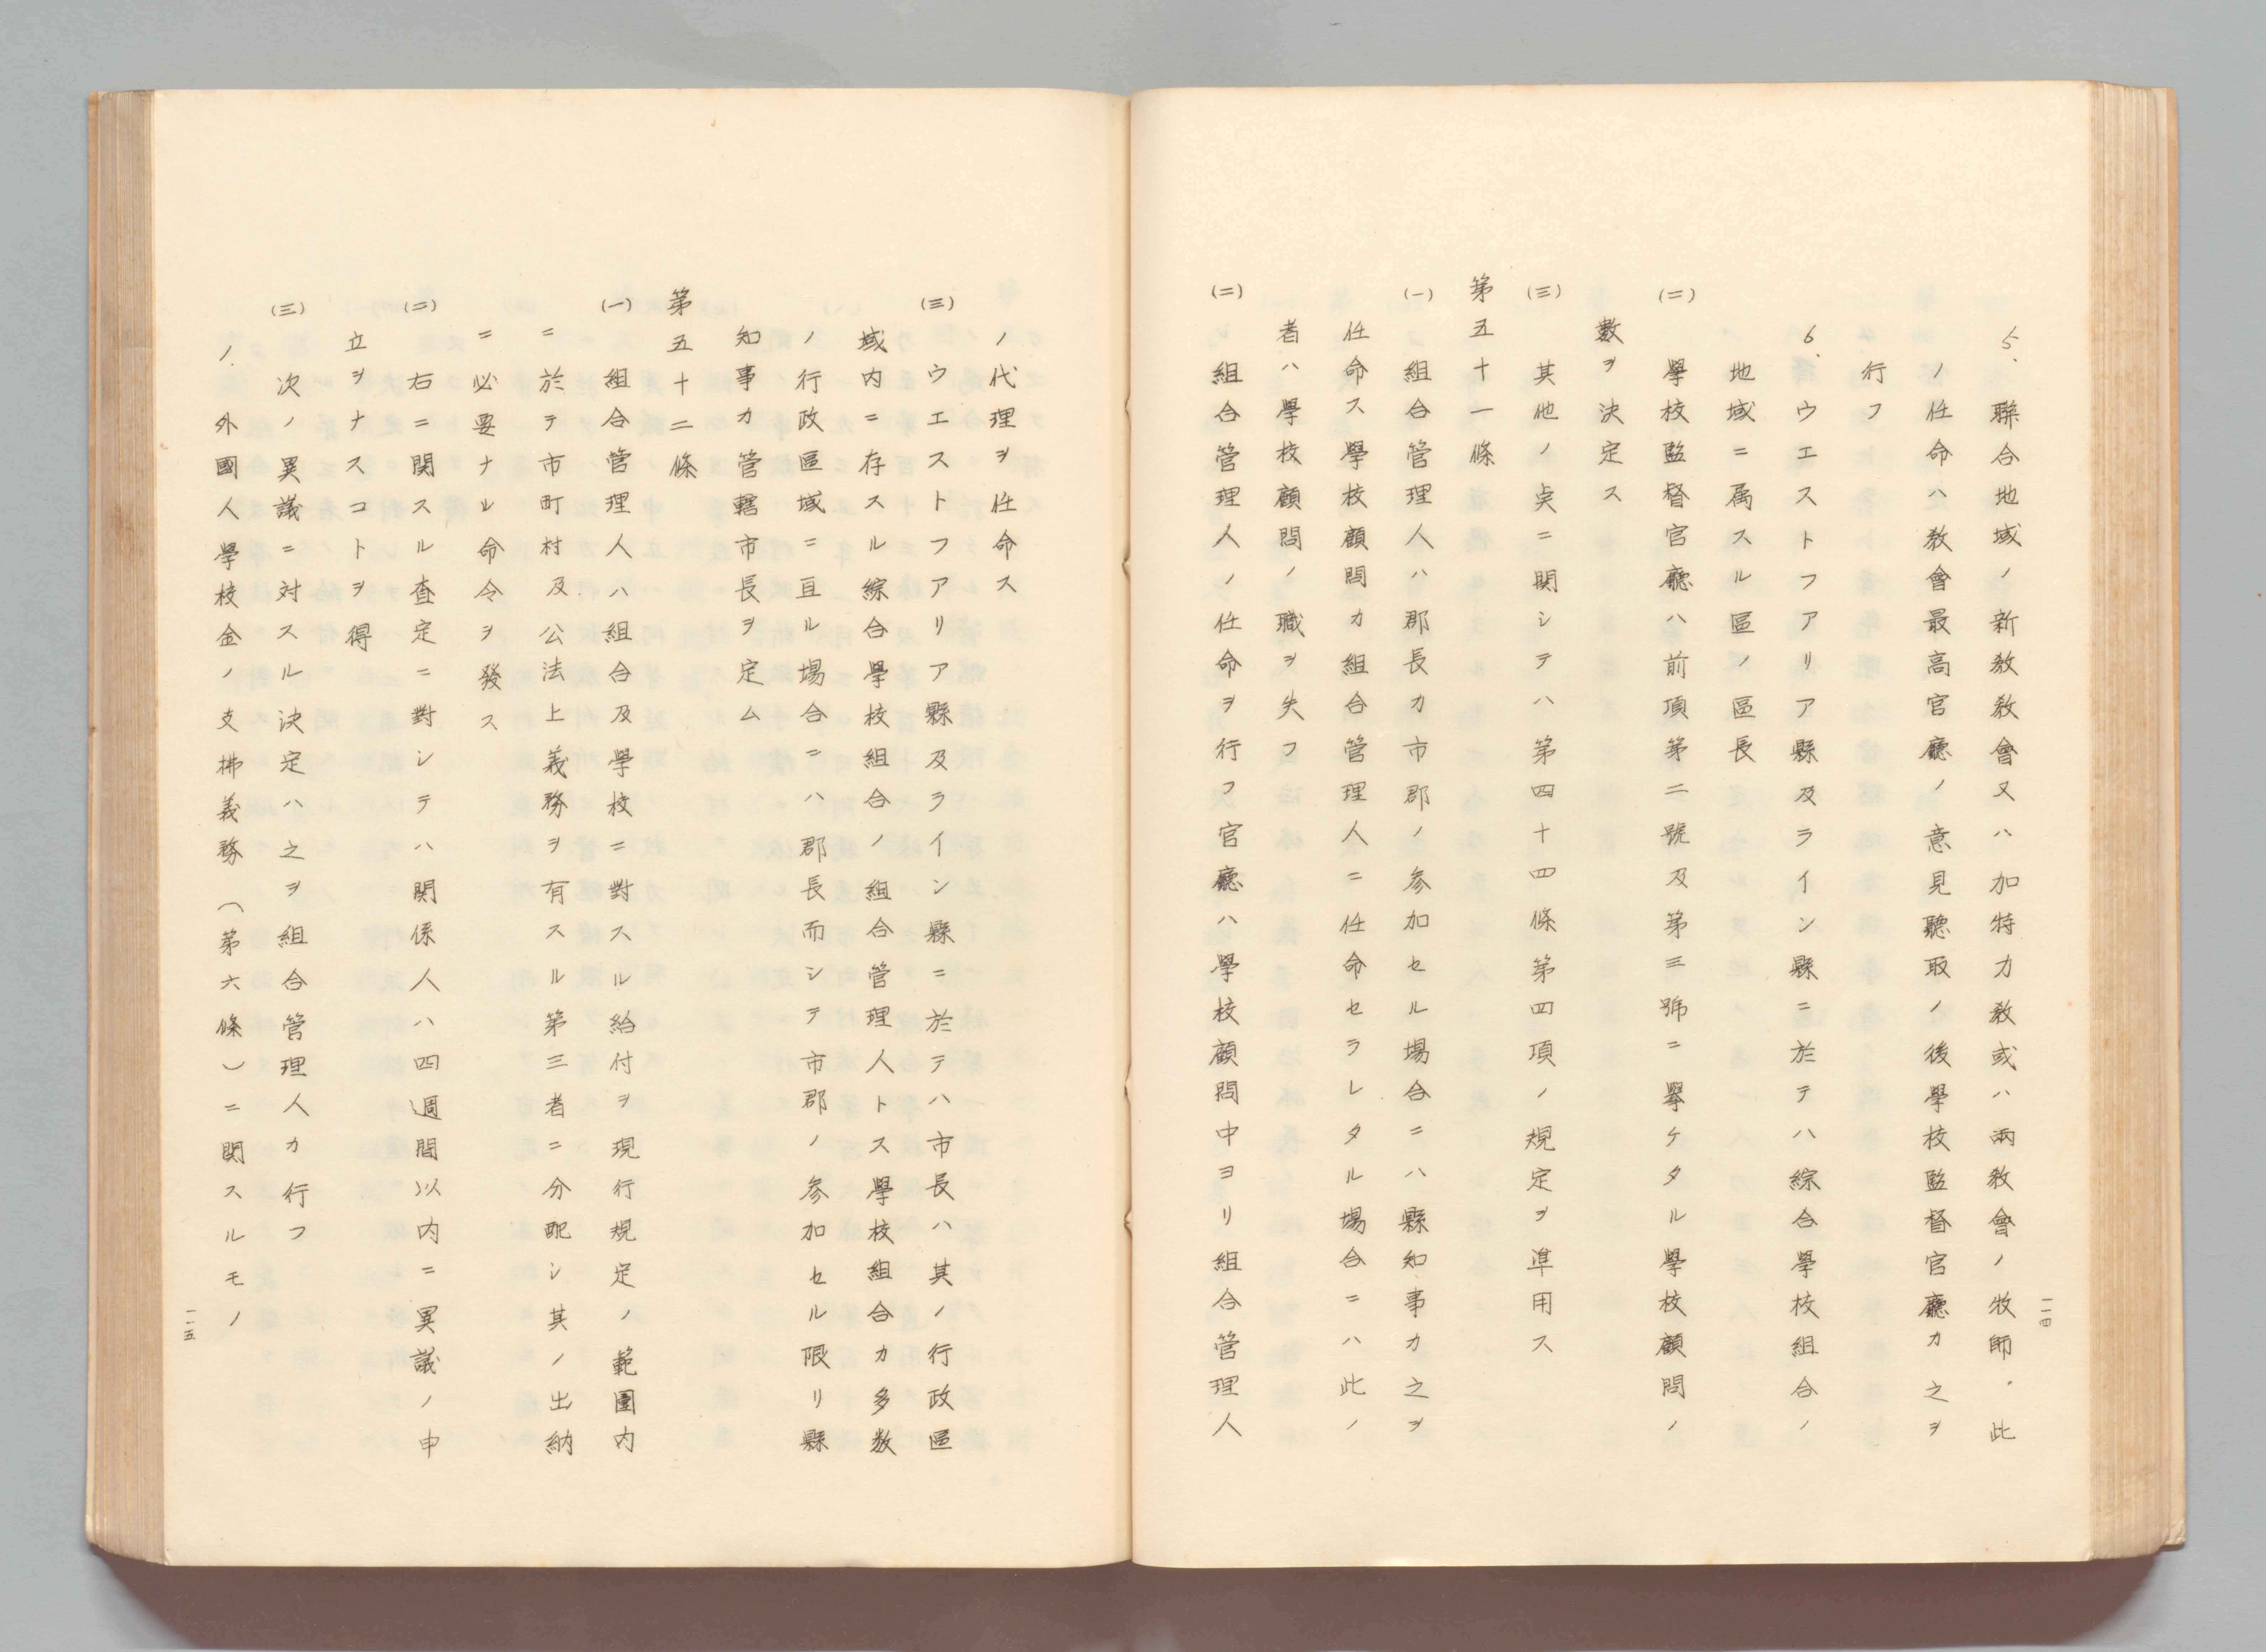 一一四
5. 聯合地域ノ新教教會又ハ加特力教或ハ兩教會ノ牧師・此
ノ任命ハ教會最高官廳ノ意見聽取ノ後學校監督官廳カ之ヲ
行フ
6. ウエストフアリア縣及ライン縣ニ於テハ綜合學校組合ノ
地域ニ属スル區ノ區長
(二) 學校監督官廳ハ前項第二號及第三號ニ擧ケタル學校顧問ノ
數ヲ決定ス
(三) 其他ノ点ニ関シテハ第四十四條第四項ノ規定ヲ準用ス
第五十一條
(一) 組合管理人ハ郡長カ市郡ノ参加セル場合ニハ縣知事カ之ヲ
任命ス學校顧問カ組合管理人ニ任命セラレタル場合ニハ此ノ
者ハ學校顧問ノ職ヲ失フ
(二) 組合管理人ノ任命ヲ行フ官廳ハ學校顧問中ヨリ組合管理人
ノ代理ヲ任命ス
(三) ウエストフアリア縣及ライン縣ニ於テハ市長ハ其ノ行政區
域内ニ存スル綜合學校組合ノ組合管理人トス學校組合カ多数
ノ行政區域ニ亘ル場合ニハ郡長而シテ市郡ノ参加セル限リ縣
知事カ管轄市長ヲ定ム
第五十二條
(一) 組合管理人ハ組合及學校ニ對スル給付ヲ現行規定ノ範圍内
ニ於テ市町村及公法上義務ヲ有スル第三者ニ分配シ其ノ出納
ニ必要ナル命令ヲ發ス
(二) 右ニ関スル査定ニ對シテハ関係人ハ四週間以内ニ異議ノ申
立ヲナスコトヲ得
(三) 次ノ異議ニ対スル決定ハ之ヲ組合管理人カ行フ
1. 外國人學校金ノ支拂義務(第六條)ニ関スルモノ
一一五